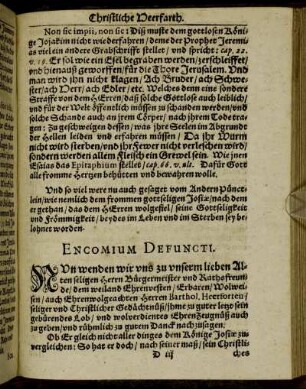 Christliche Heerfarth.
Non sic impii, non sic: Diß muste dem gottlosen Köni-
ge Jojakim nicht wiederfahren / deme der Prophet Jeremi-
as viel ein andere Grabschrifft stellet / und spricht: cap. 22.
v. 19. Er sol wie ein Esel begraben werden / zerschleifft
und hienauß geworffen / für die Thore Jerusalem. Und
man wird jhn nicht klagen / Ach Bruder / ach Schwe-
ster / ach Herr / ach Edler / etc. Welches denn eine sondere
Straffe von dem HErren / daß solche Gottlose auch leiblich /
und für der Welt öffentlich müssen zu schanden werden / und
solche Schande auch an jrem Cörper / nach jhrem Tode tra-
gen: Zu geschweigen dessen / was jhre Seelen im Abgrund
der Hellen leiden und erfahren müssen / Da jhr Wurm
nicht wird sterben / und jhr Fewer nicht verleschen wird /
sondern werden allem Fleische ein Grewel sein. Wie jnen
Esaias das Epitaphium stellet / cap. 66. v. ult. Dafür Gott
alle fromme Hertzen behütten und bewahren wolle.
Und so viel were nu auch gesaget vom Andern Pünct-
lein / wie nemlich dem frommen gottseligen Josiæ / nach dem
er gethan / das dem HErren wolgefiel / seine Gottseligkeit
und Frömmigkeit / beydes im Leben und im Sterben sey be-
lohnet worden.
ENCOMIUM DEFUNCTI.
NUn wenden wir uns zu unserm lieben Al-
ten seligen Herrn Bürgermeister und Rathsfreun-
de / dem weiland Ehrenvesten / Erbaren / Wolwei-
sen / auch Ehrenwolgeachten Herren Barthol. Heerforten /
seliger und Christlicher Gedächtnüß / jhme zu guter letzt sein
gebürendes Lob / und wolverdientes Ehren Zeugnüß auch
zu geben / und rühmlich zu gutem Danck nachzusagen.
Ob Er gleich nicht aller dinges dem Könige Josiæ zu-
vergleichen: So hat er doch / nach seiner maß / sein Christli-
D iij
ches